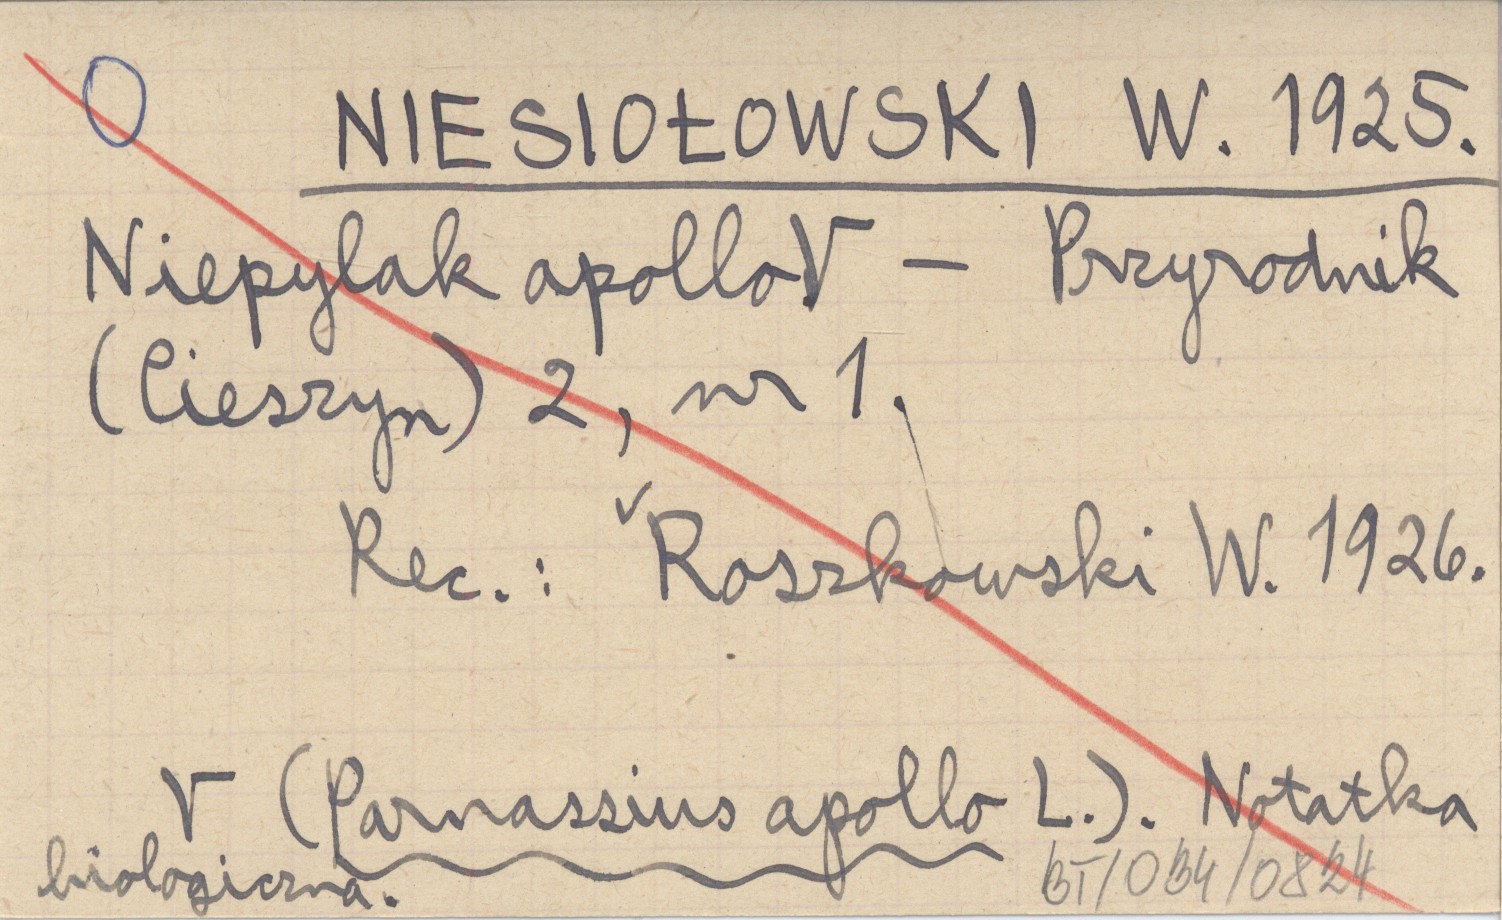 NIESIOŁOWSKI W. 1925.
Niepylak apollo √ — Przyrodnik
(Cieszyn) 2, nr 1.
Rec.: √ Roszkowski W. 1926.
√ (Parnassius apollo L.). Notatka
biologiczna.
BT/OB4/0824